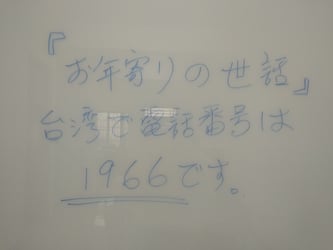 『お年寄りの世話』
台湾で電話番号は
1966です。